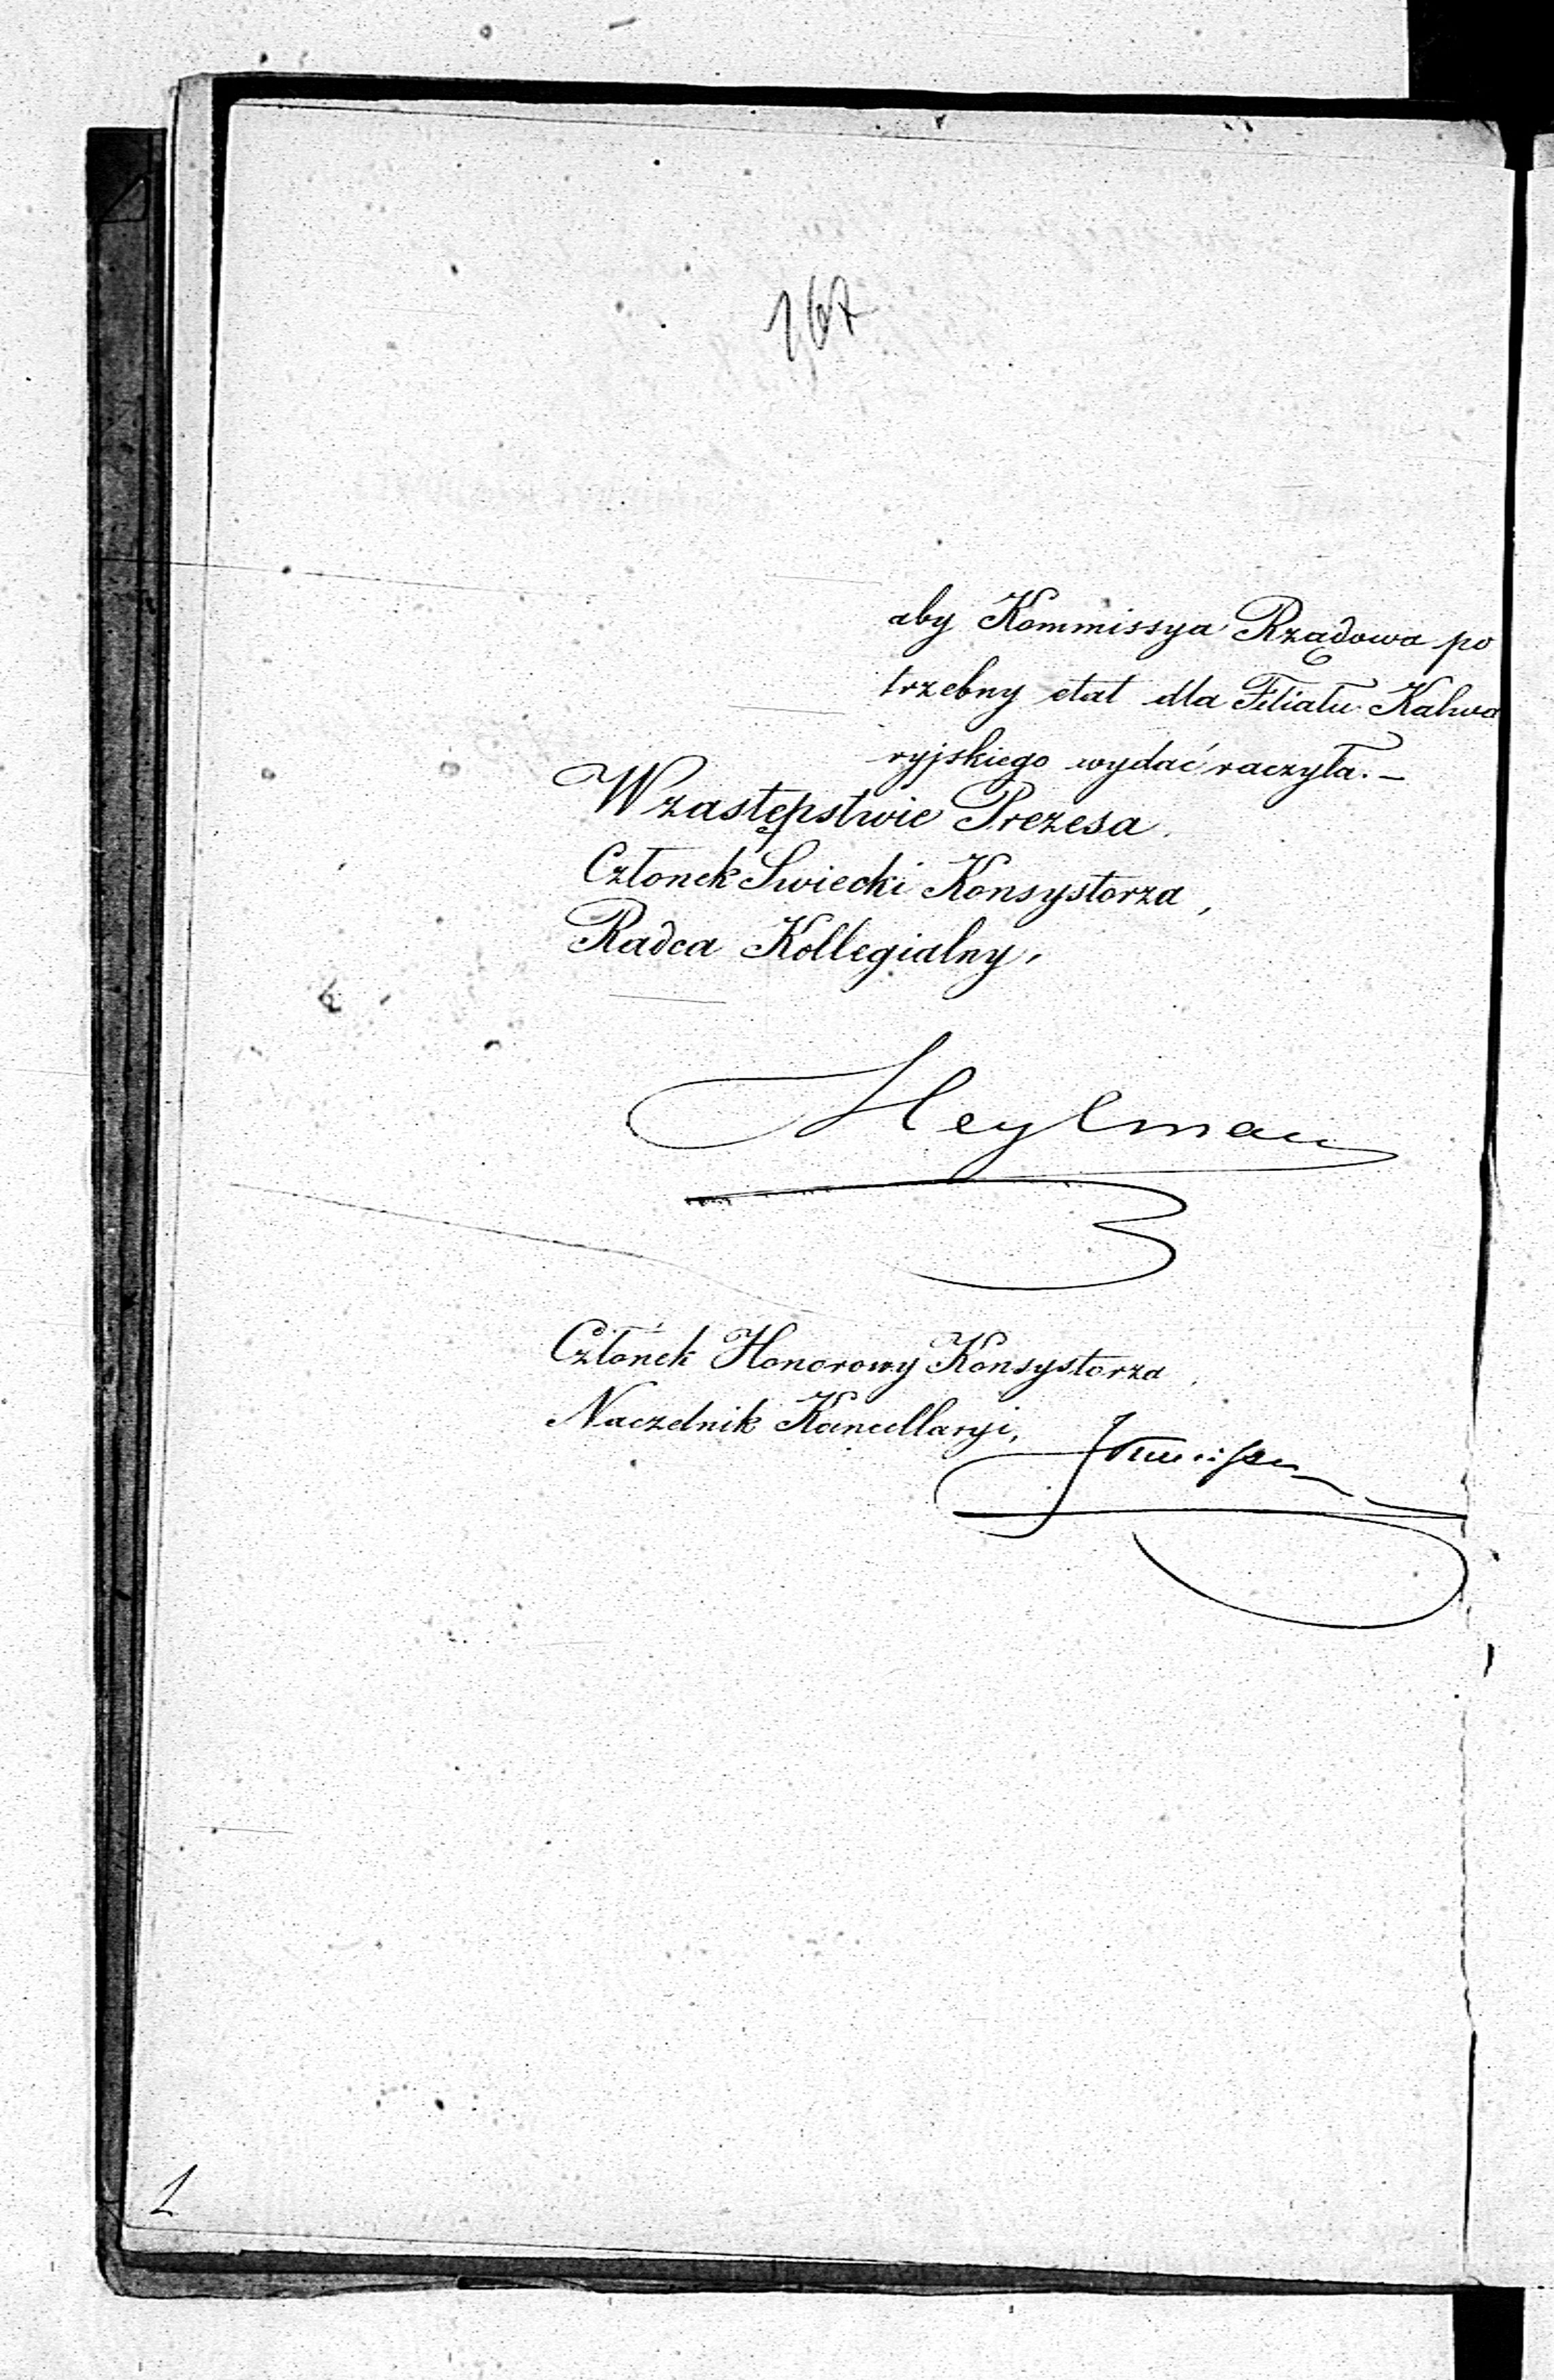 167
aby Kommissya Rządowa po
trzebny etat dla Filiału Kalwa
ryjskiego wydać raczyła. –
W zastępstwie Prezesa
Członek Swiecki Konsystorza,
Radca Kollegialny,
Heylman
Członek Honorowy Konsystorza
Naczelnik Kancellaryi,
1